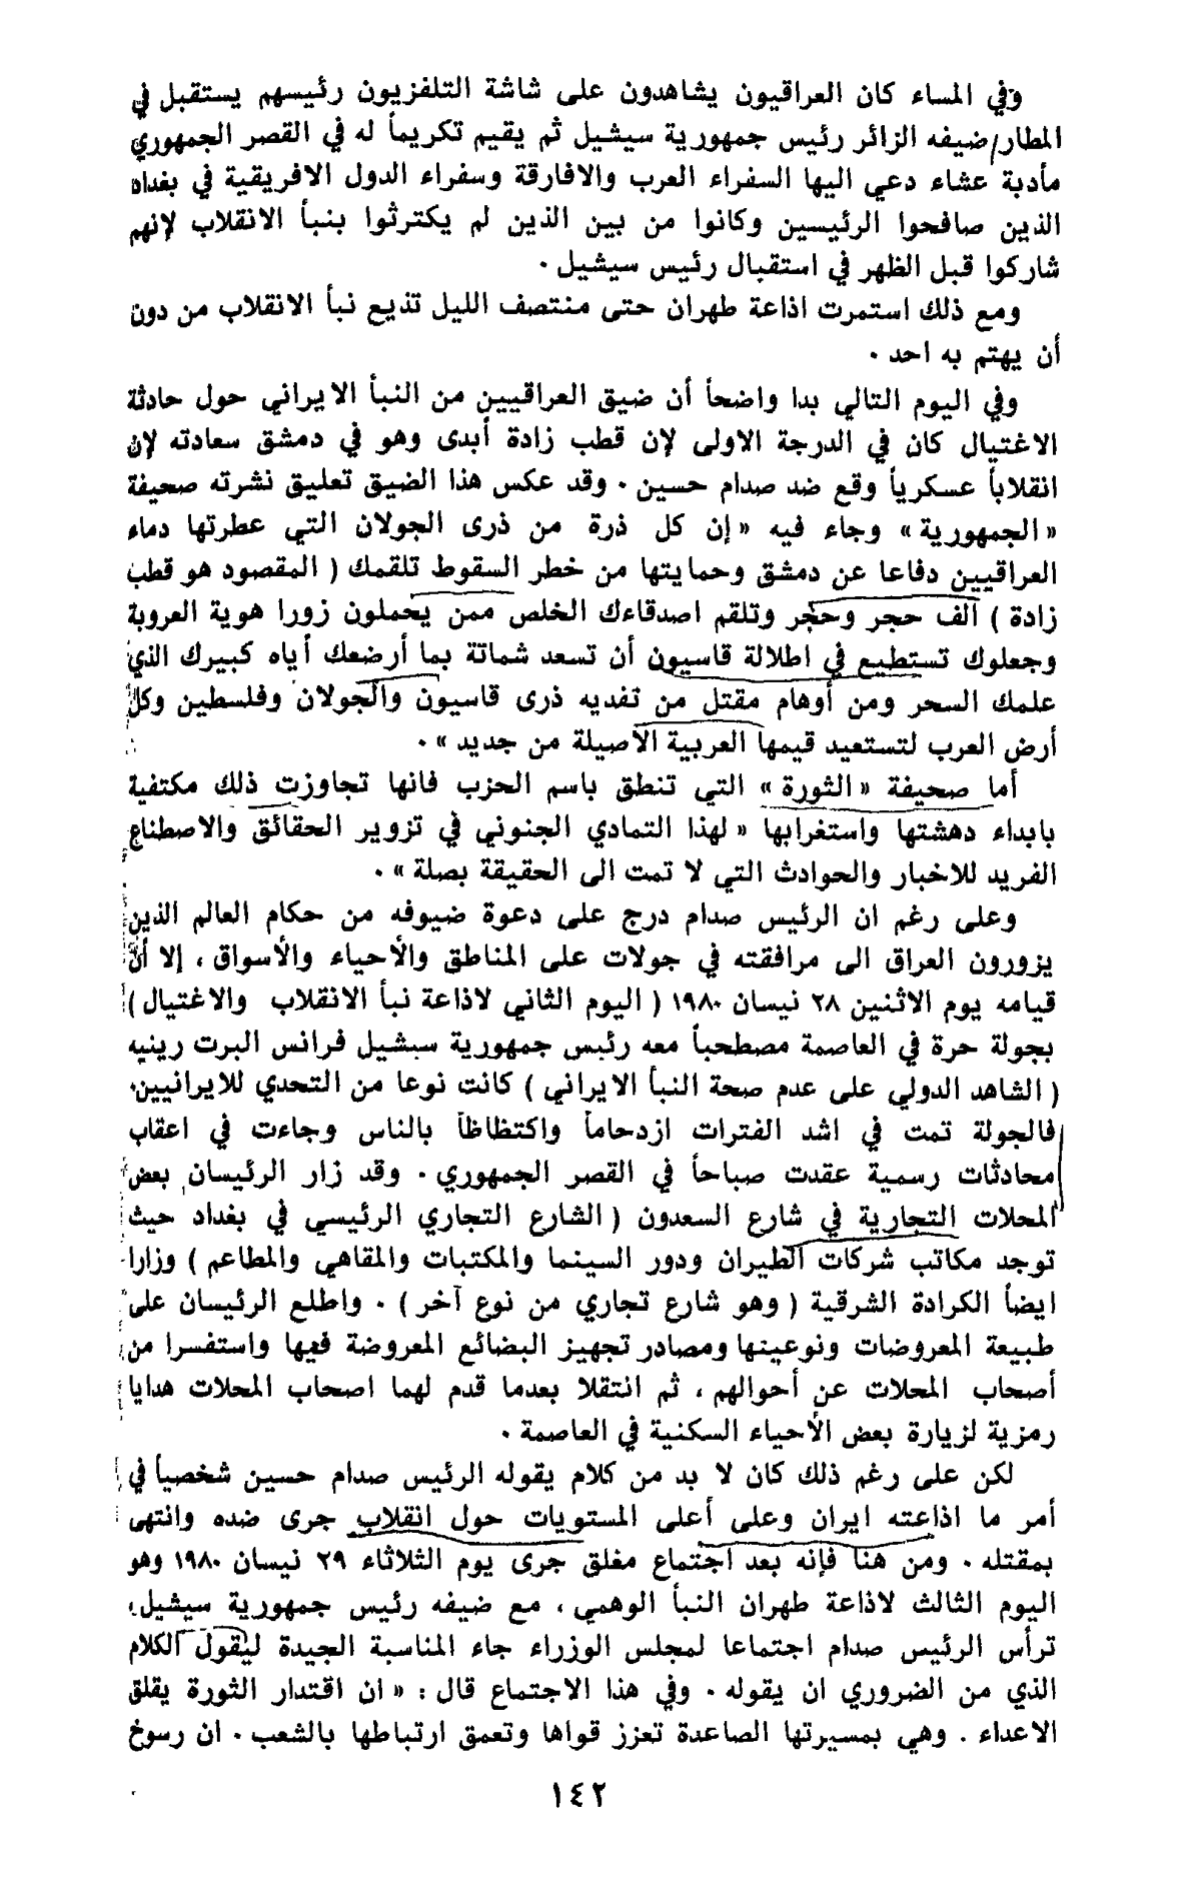 وفي المساء كان العراقيون يشاهدون على شاشة التلفزيون رئيسهم يستقبل في
المطار/ضيفه الزائر رئيس جمهورية سيشيل ثم يقيم تكريماً له في القصر الجمهوري
مأدبة عشاء دعي اليها السفراء العرب والافارقة وسفراء الدول الافريقية في بغداد
الذين صافحوا الرئيسين وكانوا من بين الذين لم يكترثوا بنبأ الانقلاب لإنهم
شاركوا قبل الظهر في استقبال رئيس سيشيل .
ومع ذلك استمرت اذاعة طهران حتى منتصف الليل تذيع نبأ الانقلاب من دون
أن يهتم به احد .
وفي اليوم التالي بدا واضحاً أن ضيق العراقيين من النبأ الايراني حول حادثة
الاغتيال كان في الدرجة الاولى لإن قطب زادة أبدى وهو في دمشق سعادته لإن
انقلاباً عسكرياً وقع ضد صدام حسين . وقد عكس هذا الضيق تعليق نشرته صحيفة
« الجمهورية » وجاء فيه « إن كل ذرة من ذرى الجولان التي عطرتها دماء
العراقيين دفاعا عن دمشق وحمايتها من خطر السقوط تلقمك ( المقصود هو قطب
زادة ) ألف حجر وحجر وتلقم اصدقاءك الخلص ممن يحملون زورا هوية العروبة
وجعلوك تستطيع في اطلالة قاسيون أن تسعد شماتة بما أرضعك أياه كبيرك الذي
علمك السحر ومن أوهام مقتل من تفديه ذرى قاسيون والجولان وفلسطين وكل
أرض العرب لتستعيد قيمها العربية الأصيلة من جديد » .
أما صحيفة « الثورة » التي تنطق باسم الحزب فانها تجاوزت ذلك مكتفية
بابداء دهشتها واستغرابها « لهذا التمادي الجنوني في تزوير الحقائق والاصطناع
الفريد للاخبار والحوادث التي لا تمت الى الحقيقة بصلة » .
وعلى رغم ان الرئيس صدام درج على دعوة ضيوفه من حكام العالم الذين
يزورون العراق الى مرافقته في جولات على المناطق والأحياء والأسواق ، إلا أن
قيامه يوم الاثنين ٢٨ نيسان ١٩٨٠ ( اليوم الثاني لاذاعة نبأ الانقلاب والاغتيال )
بجولة حرة في العاصمة مصطحباً معه رئيس جمهورية سيشيل فرانس البرت رينيه
( الشاهد الدولي على عدم صحة النبأ الايراني ) كانت نوعا من التحدي للايرانيين.
فالجولة تمت في اشد الفترات ازدحاماً واكتظاظاً بالناس وجاءت في اعقاب
محادثات رسمية عقدت صباحاً في القصر الجمهوري . وقد زار الرئيسان بعض
المحلات التجارية في شارع السعدون ( الشارع التجاري الرئيسي في بغداد حيث
توجد مكاتب شركات الطيران ودور السينما والمكتبات والمقاهي والمطاعم ) وزارا
ايضاً الكرادة الشرقية ( وهو شارع تجاري من نوع آخر ) . واطلع الرئيسان على
طبيعة المعروضات ونوعيتها ومصادر تجهيز البضائع المعروضة فيها واستفسرا من
أصحاب المحلات عن أحوالهم ، ثم انتقلا بعدما قدم لهما اصحاب المحلات هدايا
رمزية لزيارة بعض الأحياء السكنية في العاصمة .
لكن على رغم ذلك كان لا بد من كلام يقوله الرئيس صدام حسين شخصياً في
أمر ما اذاعته ايران وعلى أعلى المستويات حول انقلاب جرى ضده وانتهى
بمقتله . ومن هنا فإنه بعد اجتماع مغلق جرى يوم الثلاثاء ٢٩ نيسان ١٩٨٠ وهو
اليوم الثالث لاذاعة طهران النبأ الوهمي ، مع ضيفه رئيس جمهورية سيشيل ،
ترأس الرئيس صدام اجتماعا لمجلس الوزراء جاء المناسبة الجيدة ليقول الكلام
الذي من الضروري ان يقوله . وفي هذا الاجتماع قال : « ان اقتدار الثورة يقلق
الاعداء . وهي بمسيرتها الصاعدة تعزز قواها وتعمق ارتباطها بالشعب . ان رسوخ
١٤٢